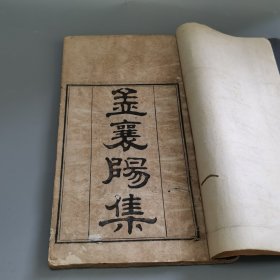 孟襄陽集